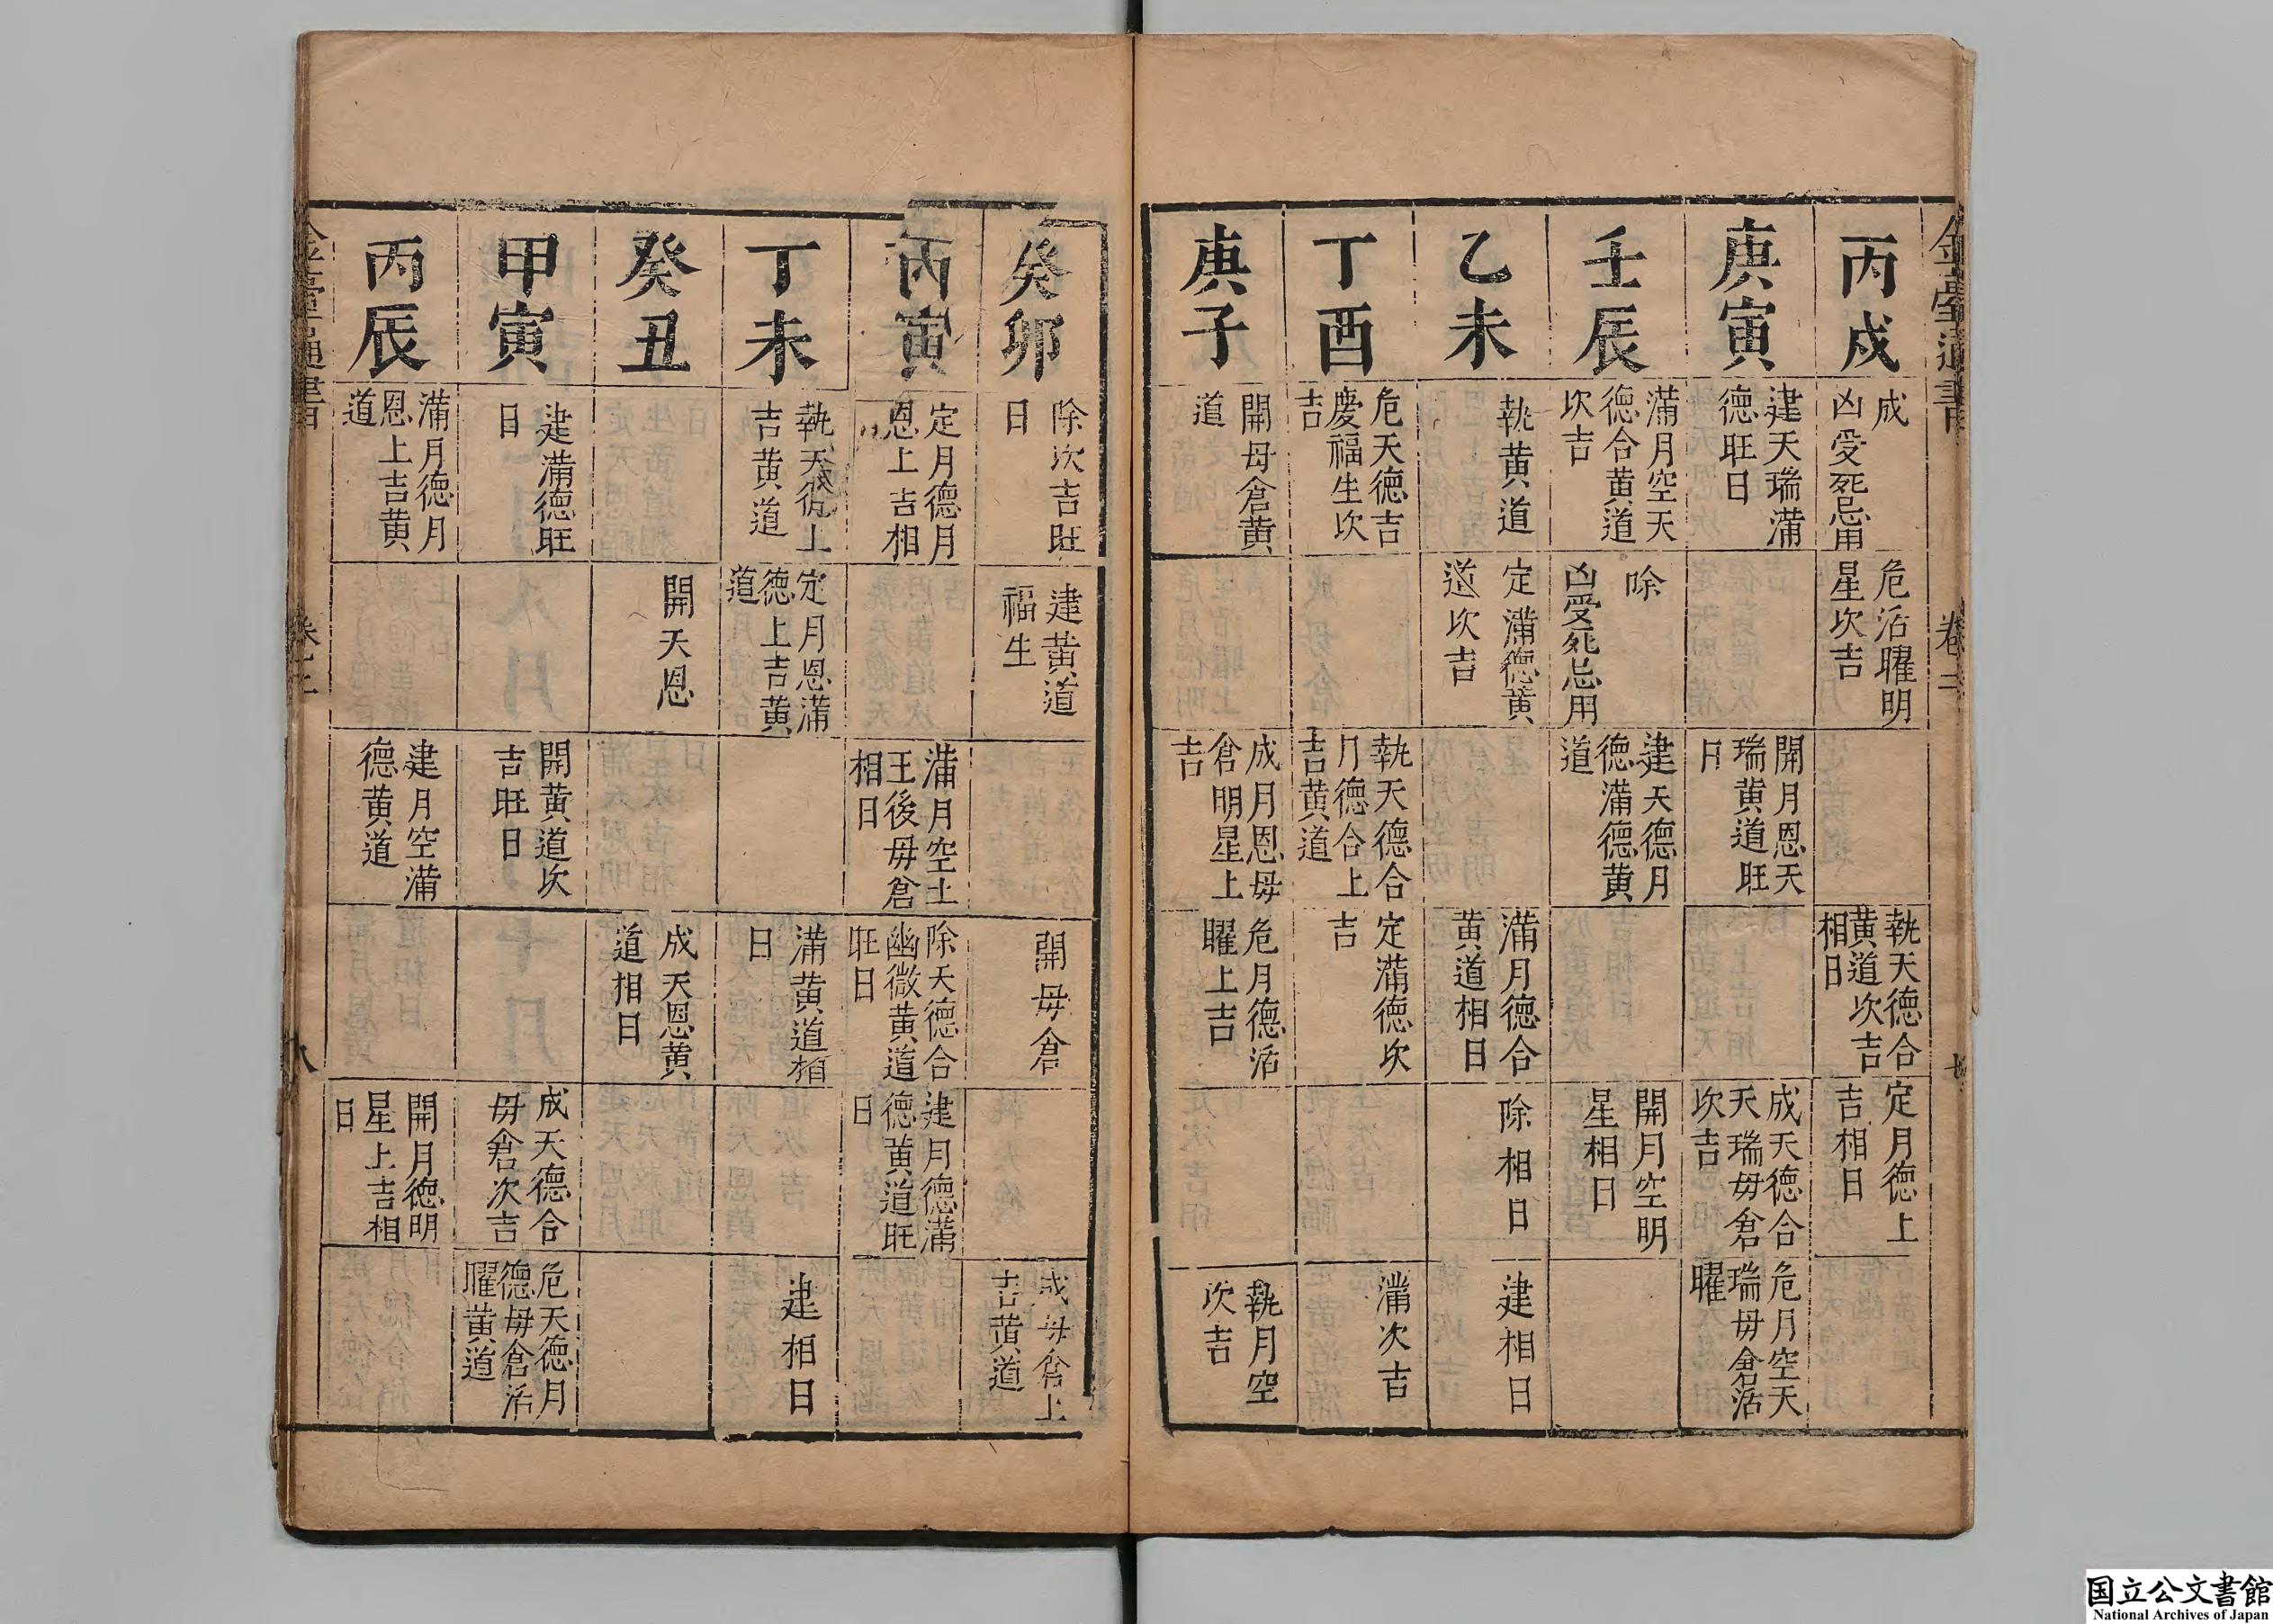 金臺通書
卷三
丙戌
成
凶受死忌用
危活曜明
星次吉
執天德合
黃道次吉
相日
定月德上
吉相日
庚寅
建天瑞滿
德旺日
開月恩天
瑞黃道旺
日
成天德合
天瑞毋倉
次吉
危月空天
瑞毋倉活
曜
壬辰
滿月空天
德合黃道
次吉
除
凶受死忌用
建天德月
德滿德黃
道
開月空明
星相日
乙未
執黃道
定滿德黃
道次吉
滿月德合
黃道相日
除相日
建相日
丁酉
危天德吉
慶福生次
吉
執天德合
月德合上
吉黃道
定滿德次
吉
滿次吉
庚子
開毋倉黃
道
成月恩毋
倉明星上
吉
危月德活
曜上吉
執月空
次吉
癸卯
除次吉旺
日
建黃道
福生
開毋倉
成毋倉上
吉黃道
丙寅
定月德月
恩上吉相
滿月空土
王後毋倉
相日
除天德合
幽微黃道
旺日
建月德滿
德黃道旺
日
丁未
執天德上
吉黃道
定月恩滿
德上吉黃
道
滿黃道相
日
建相日
癸丑
開天恩
成天恩黃
道相日
甲寅
建滿德旺
日
開黃道次
吉旺日
成天德合
毋倉次吉
危天德月
德毋倉活
曜黃道
丙辰
滿月德月
恩上吉黃
道
建月空滿
德黃道
開月德明
星上吉相
日
金臺通書
八
国立公文書館
National Archives of Japan